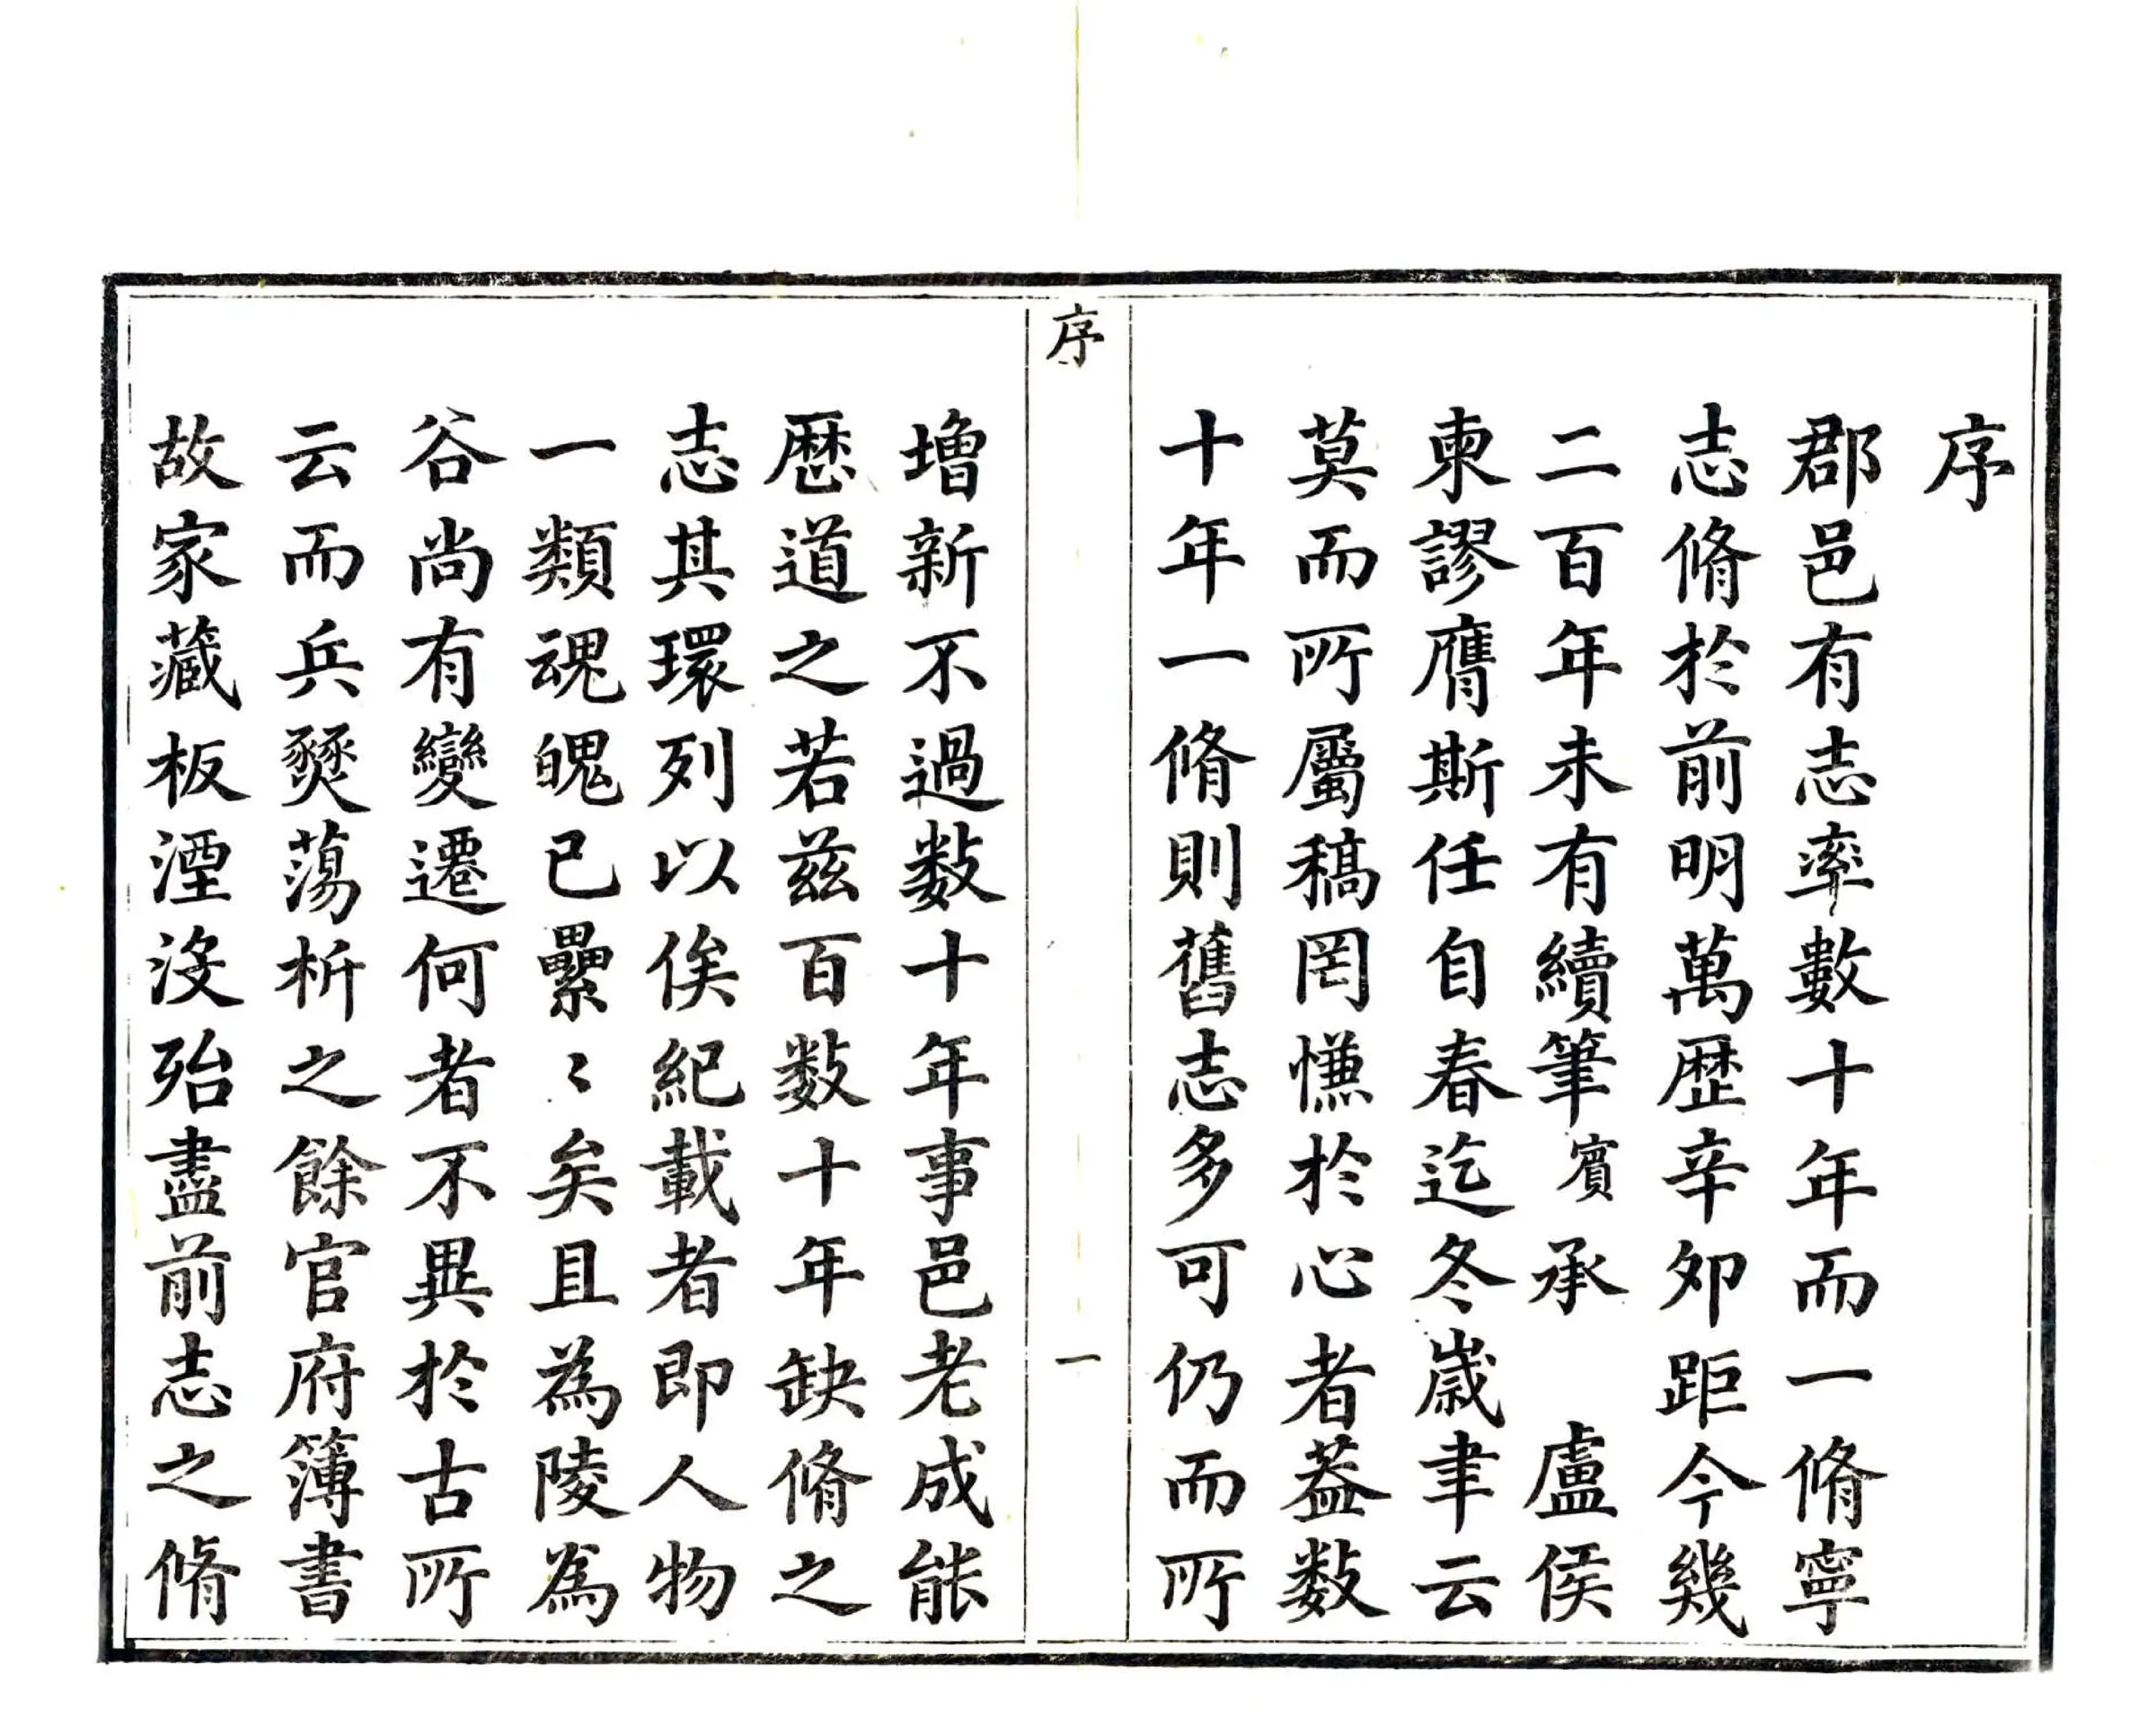 序
郡邑有志率數十年而一脩寧
志脩於前明萬歷辛夘距今幾
二百年未有續筆賓承　盧侯
柬謬膺斯任自春迄冬嵗聿云
莫而所屬稿罔慊於心者葢数
十年一脩則舊志多可仍而所
序
一
增新不過数十年事邑老成能
歴道之若兹百数十年缺脩之
志其環列以俟紀載者即人物
一類魂魄已纍〻矣且為陵為
谷尚有變遷何者不異於古所
云而兵燹蕩析之餘官府簿書
故家藏板湮没殆盡前志之脩